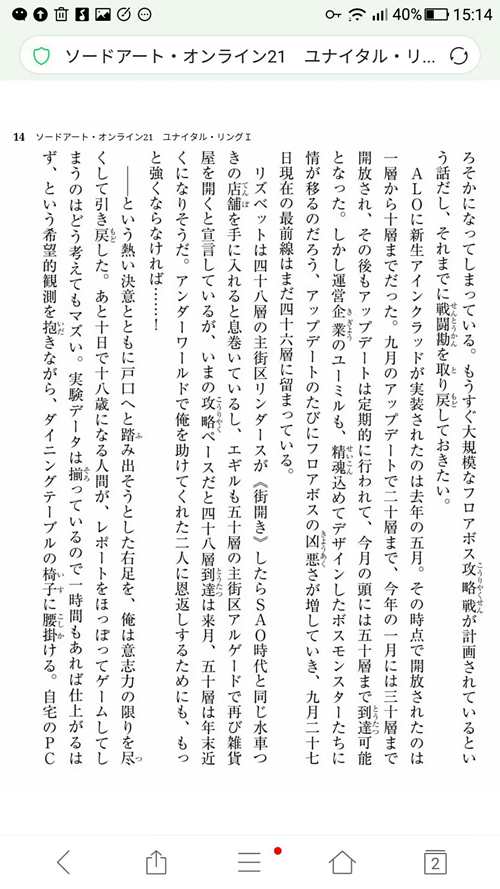 40% 15:14
ソードアート・オンライン21　ユナイタル・リ...
14 ソードアート・オンライン21　ユナイタル・リングⅠ
ろそかになってしまっている。もうすぐ大規模なフロアボス攻略戦が計画されているとい
う話だし、それまでに戦闘勘を取り戻しておきたい。
ＡＬＯに新生アインクラッドが実装されたのは去年の五月。その時点で開放されたのは
一層から十層までだった。九月のアップデートで二十層まで、今年の一月には三十層まで
開放され、その後もアップデートは定期的に行われて、今月の頭には五十層まで到達可能
となった。しかし運営企業のユーミルも、精魂込めてデザインしたボスモンスターたちに
情が移るのだろう、アップデートのたびにフロアボスの凶悪さが増していき、九月二十七
日現在の最前線はまだ四十六層に留まっている。
リズベットは四十八層の主街区リンダースが《街開き》したらＳＡＯ時代と同じ水車つ
きの店舗を手に入れると息巻いているし、エギルも五十層の主街区アルゲードで再び雑貨
屋を開くと宣言しているが、いまの攻略ペースだと四十八層到達は来月、五十層は年末近
くになりそうだ。アンダーワールドで俺を助けてくれた二人に恩返しするためにも、もっ
と強くならなければ……！
――という熱い決意とともに戸口へと踏み出そうとした右足を、俺は意志力の限りを尽
くして引き戻した。あと十日で十八歳になる人間が、レポートをほっぽってゲームしてし
まうのはどう考えてもマズい。実験データは揃っているので一時間もあれば仕上がるは
ず、という希望的観測を抱きながら、ダイニングテーブルの椅子に腰掛ける。自宅のＰＣ
2